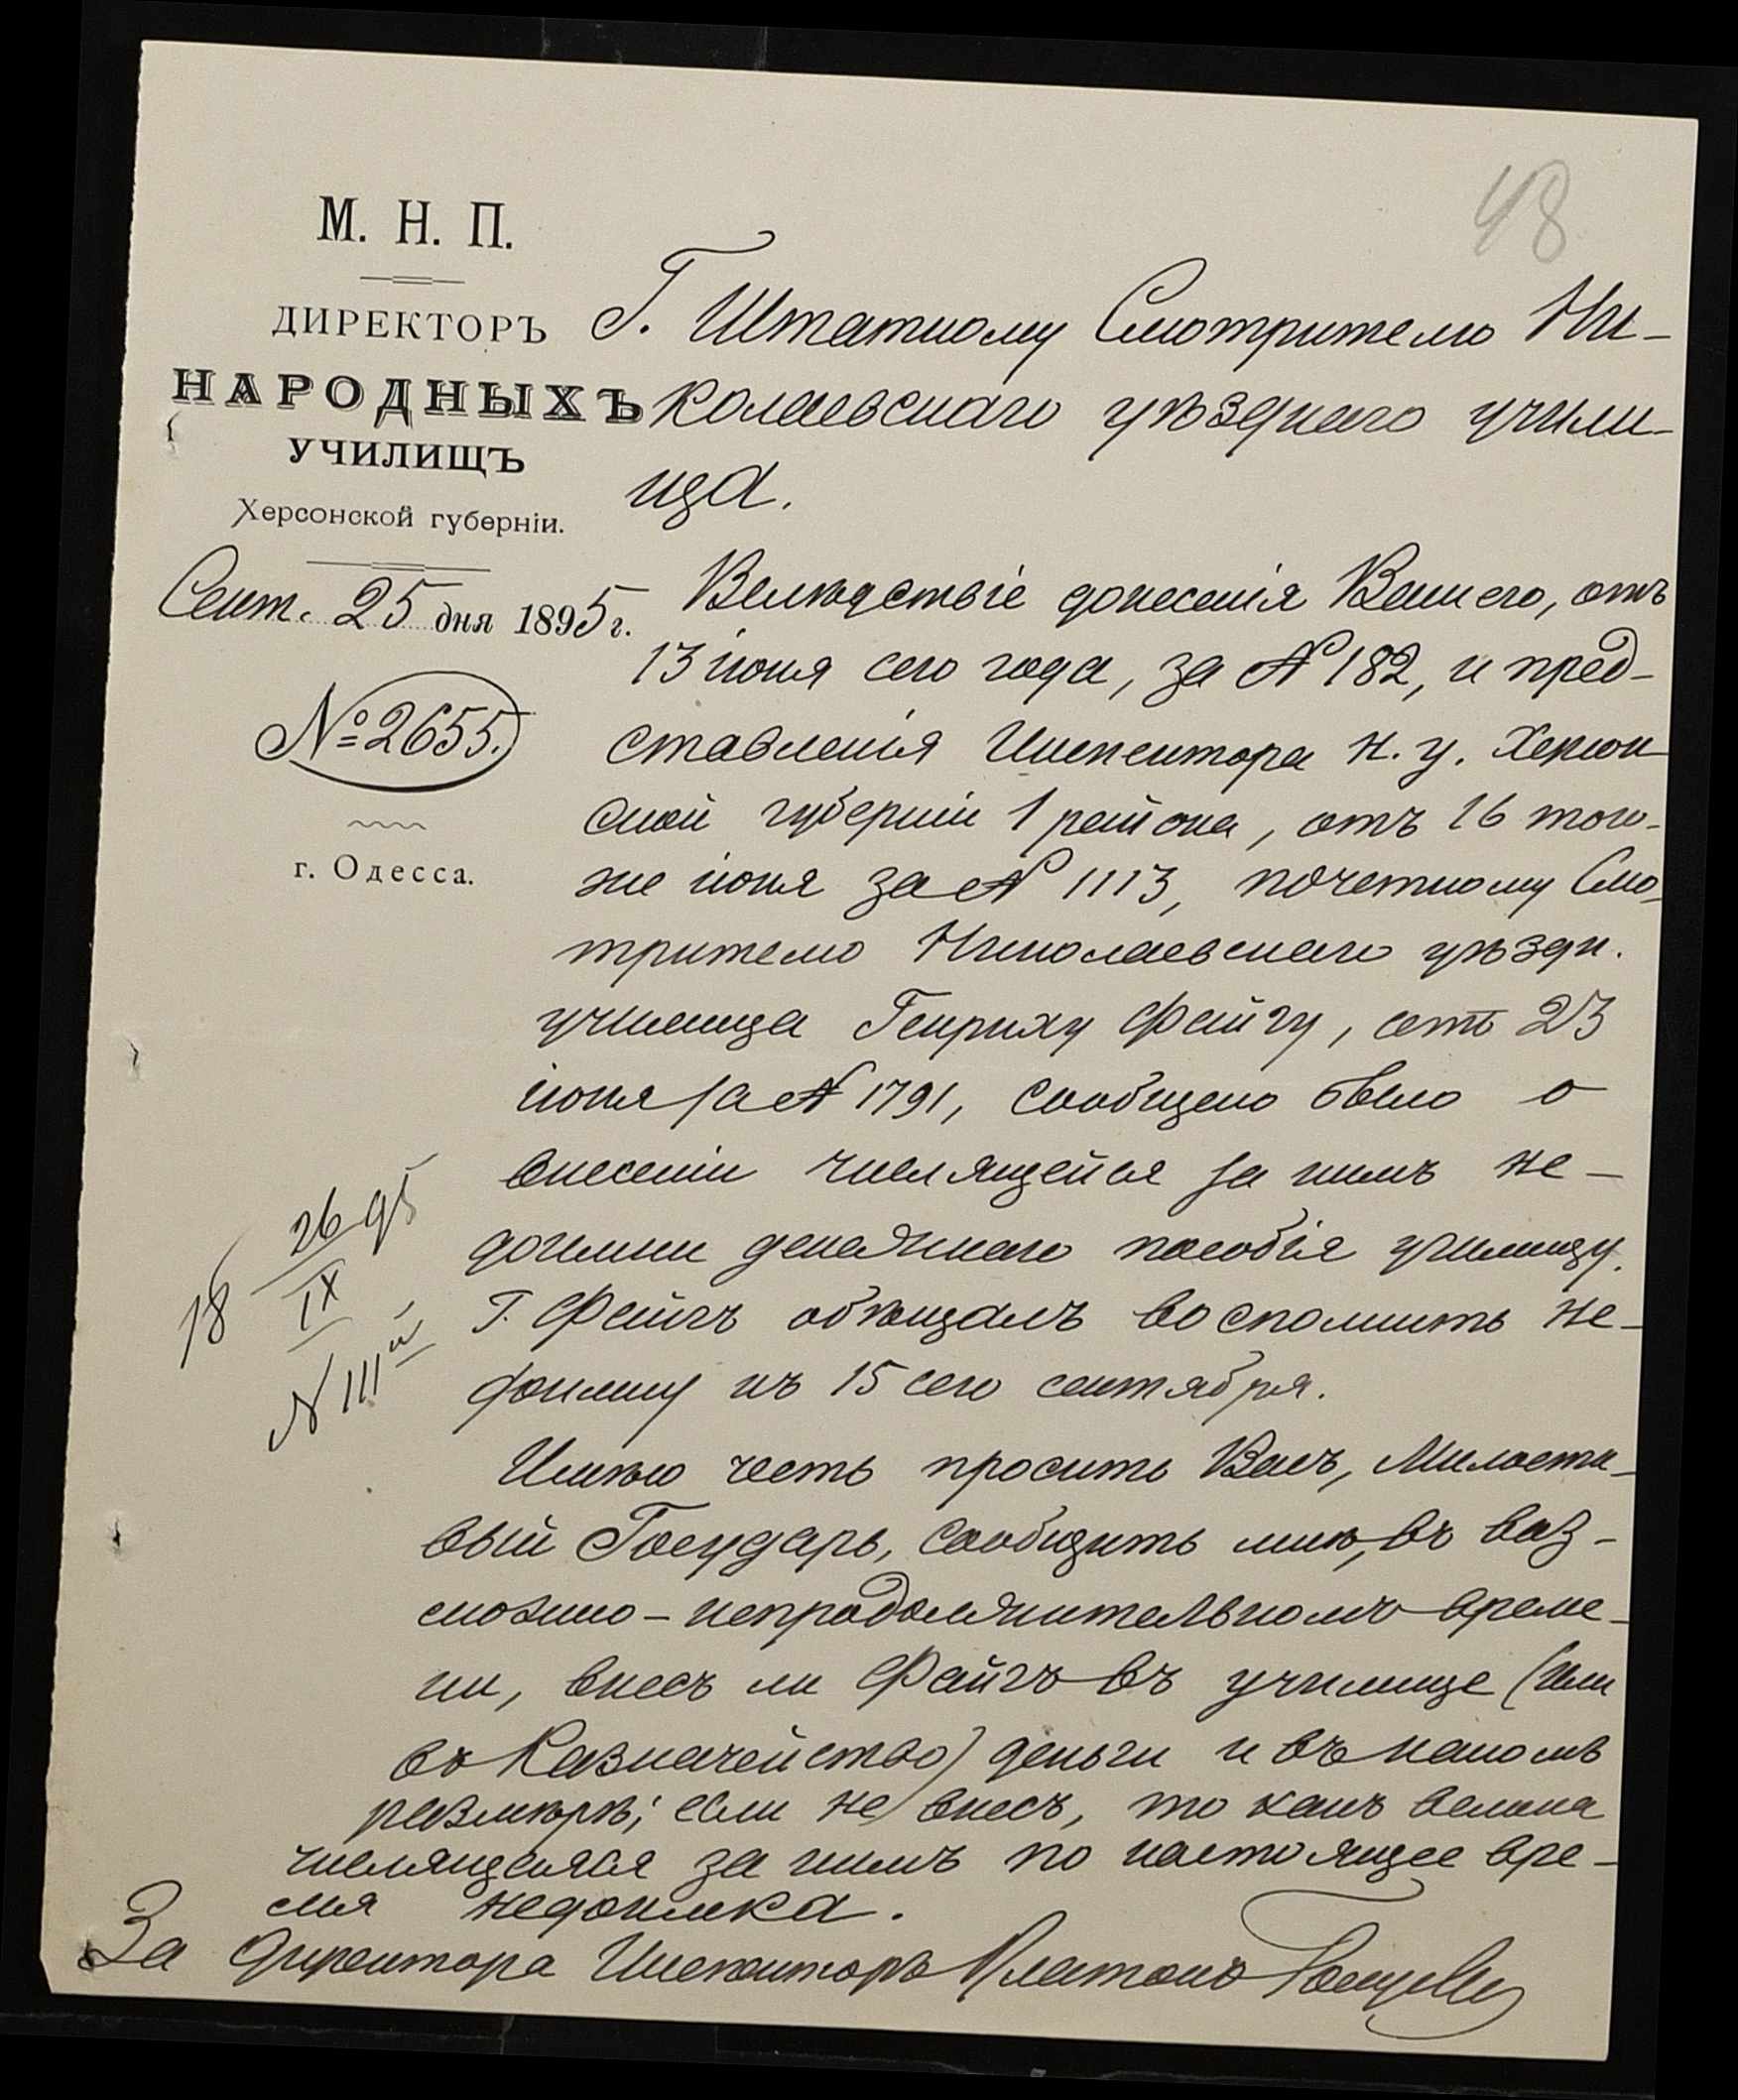 48
М. Н. П.
ДИРЕКТОРЪ
НАРОДНЫХЪ
УЧИЛИЩЪ
Херсонской губерніи.
Сент. 25 дня 1895 г.
№ 2655.
г. Одесса.
Г. Штатному Смотрителю Ни-
колаевскаго уѣзднаго учили-
ща.
Вслѣдствіе донесенія Вашего, отъ
13 іюня сего года, за № 182, и пред-
ставленія Инспектора н. у. Херсон
ской губерніи 1 района, отъ 16 того-
же іюня за № 1113, почетному Смо-
трителю Николаевскаго уѣздн.
училища Генриху Файгу, отъ 23
іюня за № 1791, сообщено было о
внесеніи числящейся за нимъ не-
доимки денежнаго пособія училищу.
Г. Файгъ обѣщалъ восполнить не-
доимку къ 15 сего сентября.
Имѣю честь просить Васъ, Милости-
вый Государь, сообщить мнѣ, въ воз-
можно-непродолжительномъ време-
ни, внесъ ли Файгъ въ училище (или
въ Казначейство) деньги и въ какомъ
размѣрѣ; если не внесъ, то какъ велика
числящаяся за нимъ по настоящее вре-
мя недоимка.
За Директора Инспекторъ Платонъ
18 26 95
IX
N III й